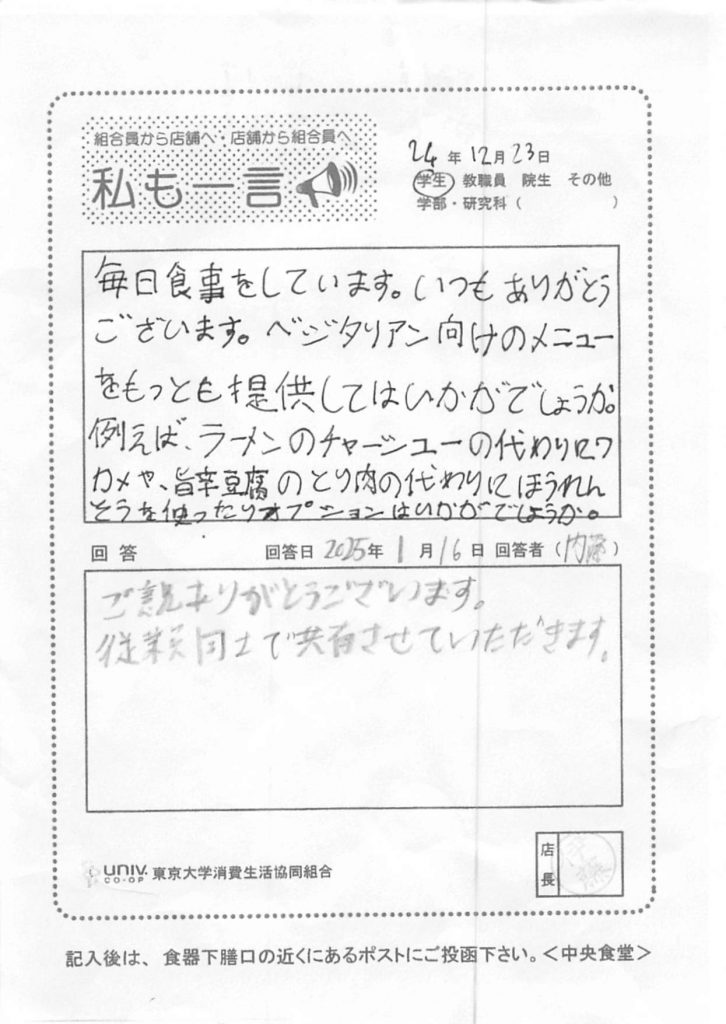 組合員から店舗へ・店舗から組合員へ
私も一言
24年12月23日
学生 教職員 院生 その他
学部・研究科（ ）
毎日食事をしています。いつもありがとう
ございます。ベジタリアン向けのメニュー
をもっとも提供してはいかがでしょうか。
例えば、ラーメンのチャーシューの代わりにワ
カメや、旨辛豆腐のとり肉の代わりにほうれん
そうを使ったりオプションはいかがでしょうか。
回答 回答日 2025年 1月16日 回答者（内藤）
ご意見ありがとうございます。
従業員同士で共有させていただきます。
店長
UNIV. CO-OP 東京大学消費生活協同組合
記入後は、食器下膳口の近くにあるポストにご投函下さい。＜中央食堂＞